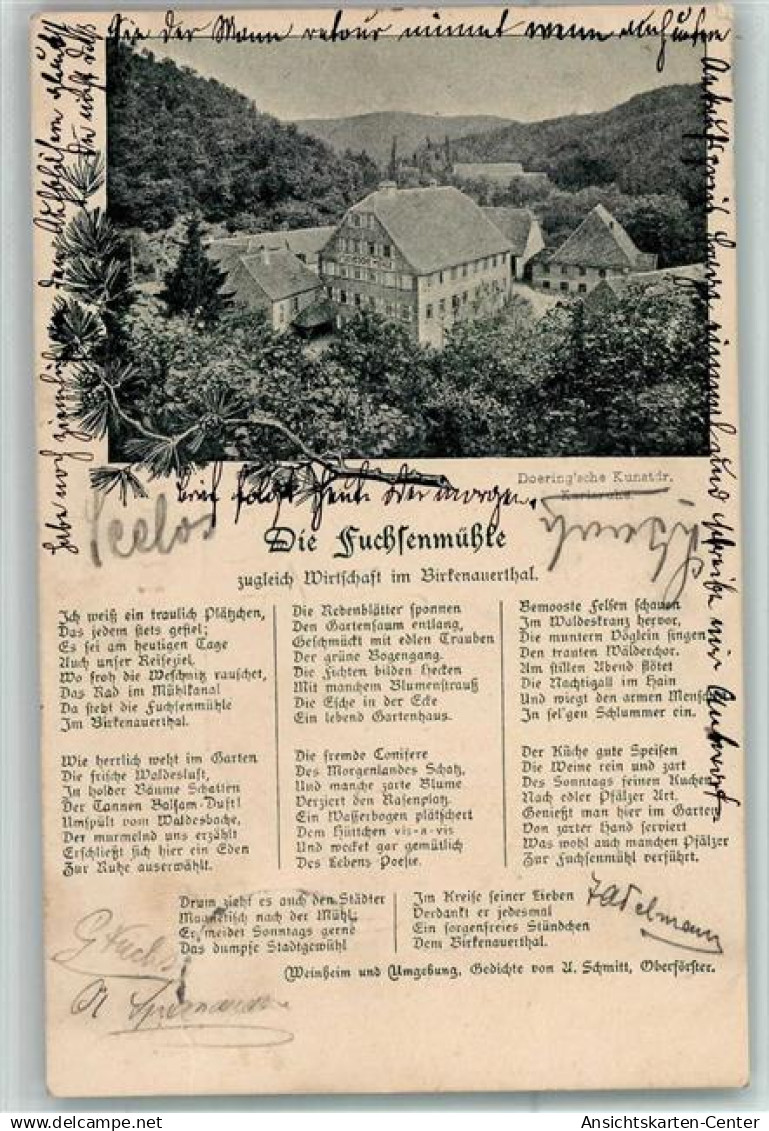 Sie der Mann retour nimmt wenn auch
Doering'sche Kunstdr.
Karlsruhe.
Brief folgt heute oder morgen.
Seelos
Die Fuchsenmühle
zugleich Wirtschaft im Birkenauerthal.
Ich weiß ein traulich Plätzchen,
Das jedem stets gefiel;
Es sei am heutigen Tage
Auch unser Reiseziel.
Wo froh die Weschnitz rauschet,
Das Rad im Mühlkanal
Da steht die Fuchsenmühle
Im Birkenauerthal.
Wie herrlich weht im Garten
Die frische Waldesluft,
In holder Bäume Schatten
Der Tannen Balsam-Duft!
Umspült vom Waldesbache,
Der murmelnd uns erzählt
Erschließt sich hier ein Eden
Zur Ruhe auserwählt.
Die Rebenblätter sponnen
Den Gartensaum entlang,
Geschmückt mit edlen Trauben
Der grüne Bogengang.
Die Fichten bilden Hecken
Mit manchem Blumenstrauß
Die Esche in der Ecke
Ein lebend Gartenhaus.
Die fremde Conifere
Des Morgenlandes Schatz,
Und manche zarte Blume
Verziert den Rasenplatz.
Ein Wasserbogen plätschert
Dem Hüttchen vis-a-vis
Und wecket gar gemütlich
Des Lebens Poesie.
Bemooste Felsen schauen
Im Waldeskranz hervor,
Die muntern Vöglein singen
Den trauten Wälderchor.
Am stillen Abend flötet
Die Nachtigall im Hain
Und wiegt den armen Menschen
In sel'gen Schlummer ein.
Der Küche gute Speisen
Die Weine rein und zart
Des Sonntags feinen Kuchen
Nach edler Pfälzer Art.
Genießt man hier im Garten
Von zarter Hand serviert
Was wohl auch manchen Pfälzer
Zur Fuchsenmühl verführt.
Drum zieht es auch den Städter
Magnetisch nach der Mühl,
Er meidet Sonntags gerne
Das dumpfe Stadtgewühl
Im Kreise seiner Lieben
Verdankt er jedesmal
Ein sorgenfreies Stündchen
Dem Birkenauerthal.
Adelmann
G Fuchs
Weinheim und Umgebung, Gedichte von A. Schmitt, Oberförster.
Ansichtskarten-Center